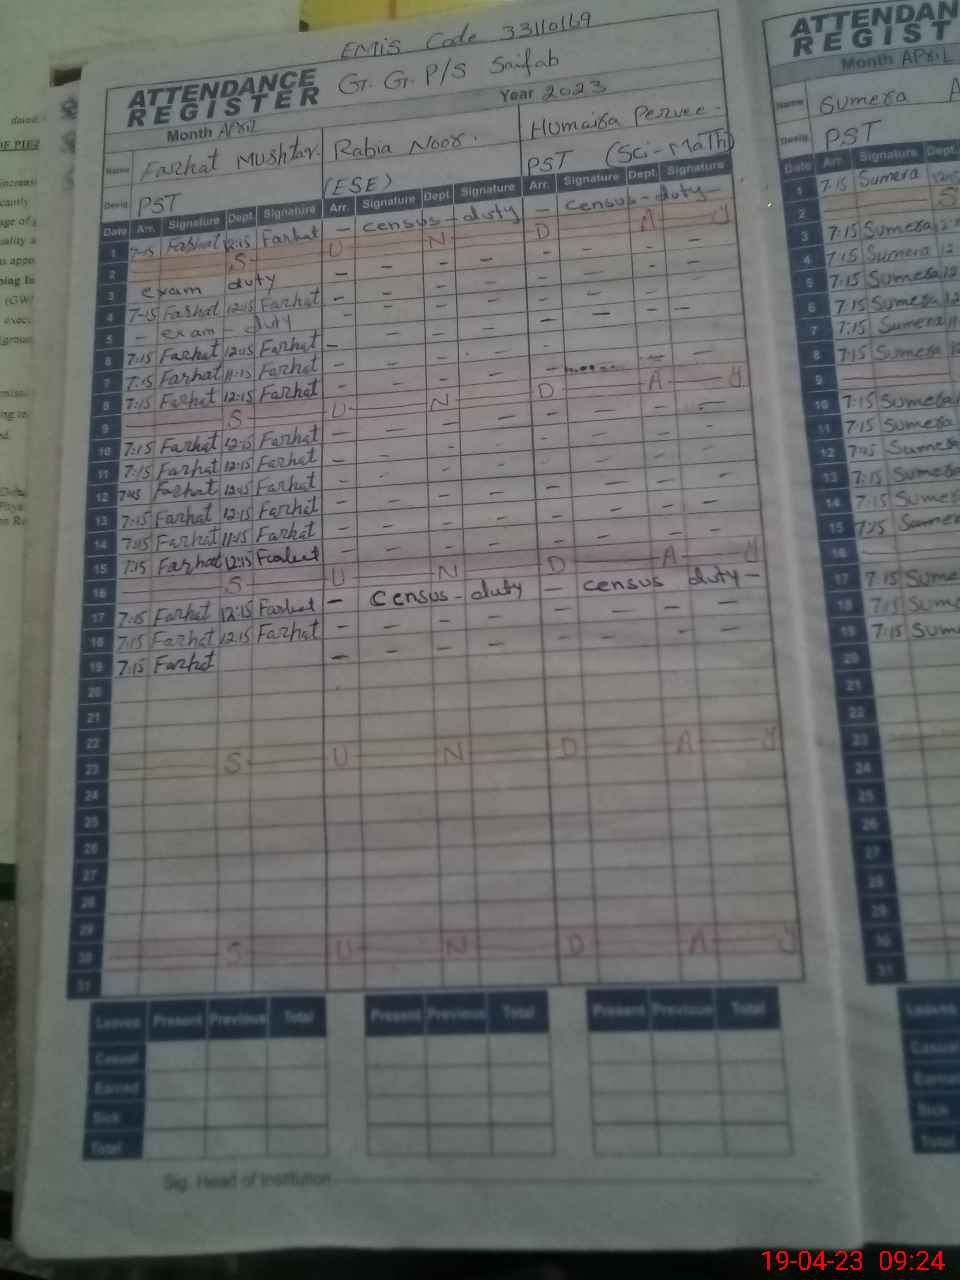 EMiS Code 33110169
ATTENDANCE REGISTER Gr. Gr. P/S Saifab
Month April Year 2023
Name Farhat Mushtar. Rabia Noor. Humaira Pervee-
Desig PST (ESE) PST (Sci-Math)
Date Arr. Signature Dept. Signature Arr. Signature Dept Signature Arr. Signature Dept. Signature
1 7-15 Farhat 12:15 Farhat - census - duty - census - duty -
2 S U N D A Y
3 exam duty - - - - - - - -
4 7-15 Farhat 12:15 Farhat - - - - - - - -
5 - exam - duty - - - - - - - -
6 7:15 Farhat 12:15 Farhat - - - - - - - -
7 7:15 Farhat 11:15 Farhat - - - - - - - -
8 7:15 Farhat 12:15 Farhat - - - - - - -
9 S U N D A Y
10 7:15 Farhat 12:15 Farhat - - - - - - - -
11 7:15 Farhat 12:15 Farhat - - - - - - - -
12 7:45 Farhat 12:45 Farhat - - - - - - - -
13 7:15 Farhat 12:15 Farhat - - - - - - - -
14 7:45 Farhat 11:45 Farhat - - - - - - - -
15 7:15 Farhat 12:15 Farhat - - - - - - -
16 S U N D A Y
17 7:15 Farhat 12:15 Farhat - census - duty - census duty -
18 7:15 Farhat 12:15 Farhat - - - - - - - -
19 7:15 Farhat - - - - - - -
20
21
22
23 S U N D A Y
24
25
26
27
28
29
30 S U N D A Y
31
Leaves Present Previous Total Present Previous Total Present Previous Total
Casual
Earned
Sick
Total
Sig. Head of Institution
ATTENDAN
REGIST
Month April
Name Sumera A
Desig PST
Date Arr. Signature Dept.
1 7:15 Sumera 12:15
2 S
3 7:15 Sumera 12
4 7:15 Sumera 12
5 7:15 Sumera 12
6 7:15 Sumera 12
7 7:15 Sumera 11
8 7:15 Sumera 12
9
10 7:15 Sumera
11 7:15 Sumera
12 7:45 Sumera
13 7:15 Sumera
14 7:15 Sumera
15 7:15 Sumer
16
17 7:15 Sume
18 7:15 Sum
19 7:15 Sum
20
21
22
23
24
25
26
27
28
29
30
31
Leaves
Casual
Earned
Sick
Total
19-04-23 09:24